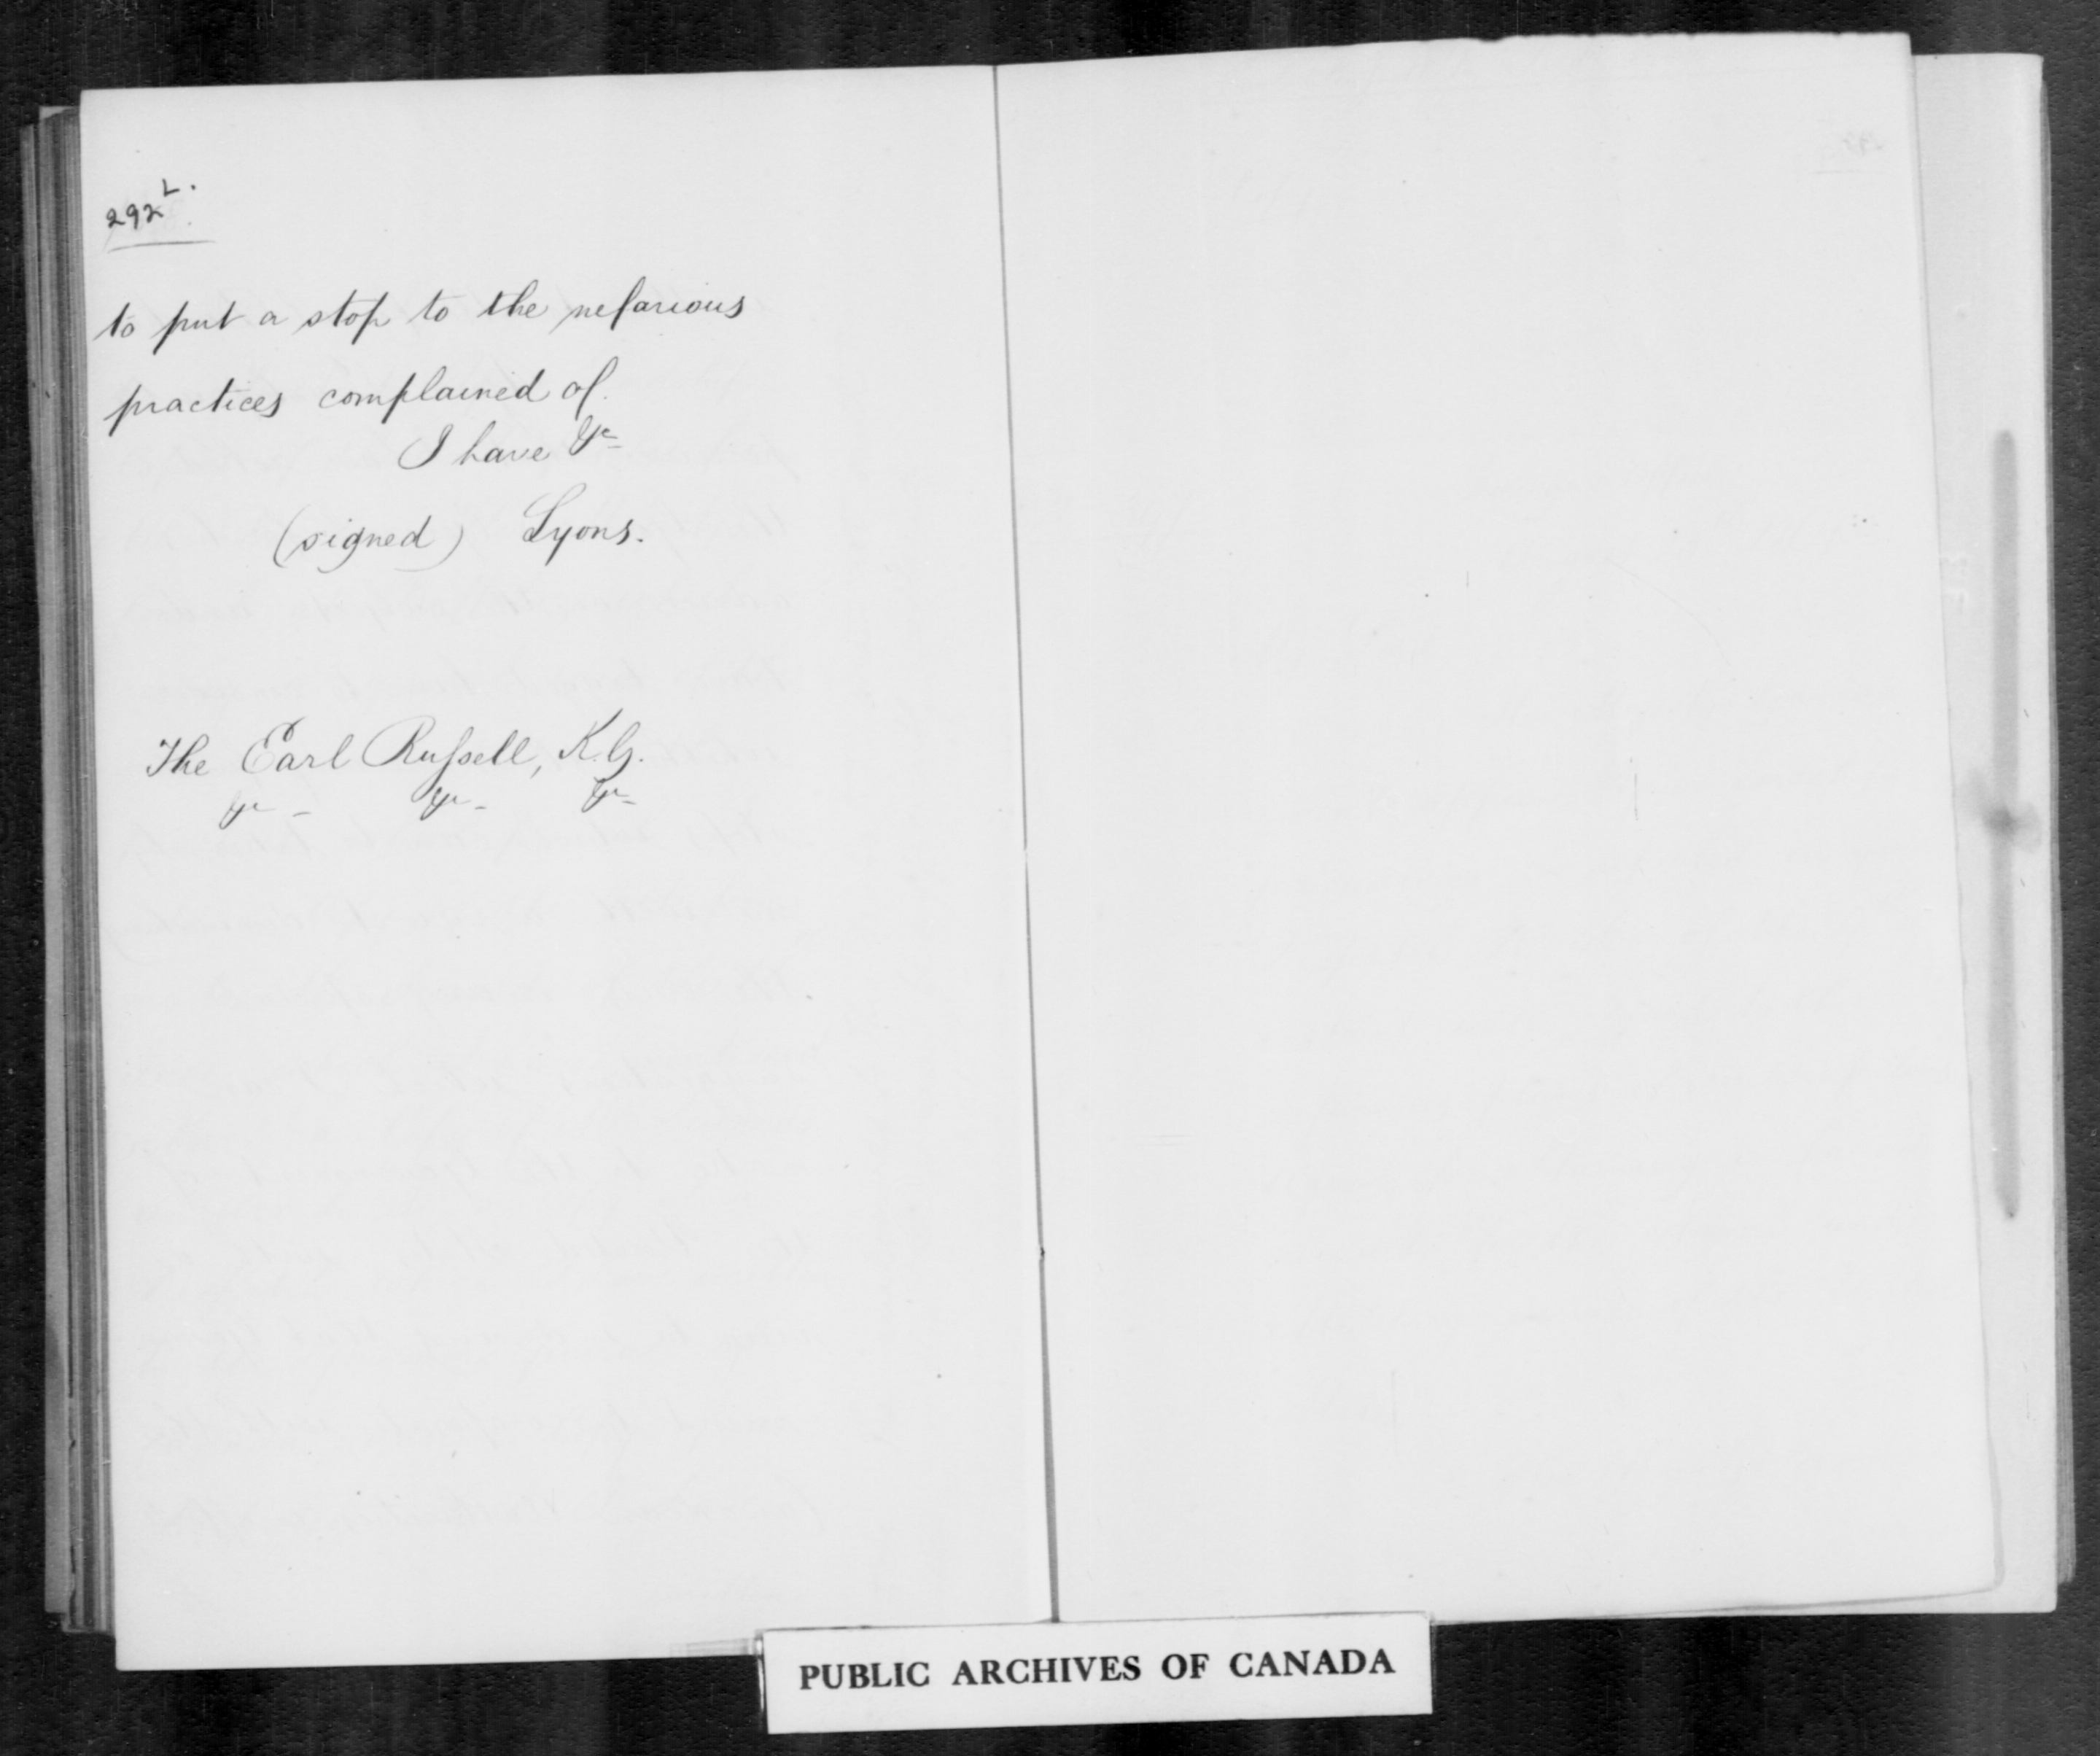 292 L.
to put a stop to the nefarious
practices complained of.
I have &c
(signed) Lyons.
The Earl Russell, K.G.
&c &c &c
PUBLIC ARCHIVES OF CANADA